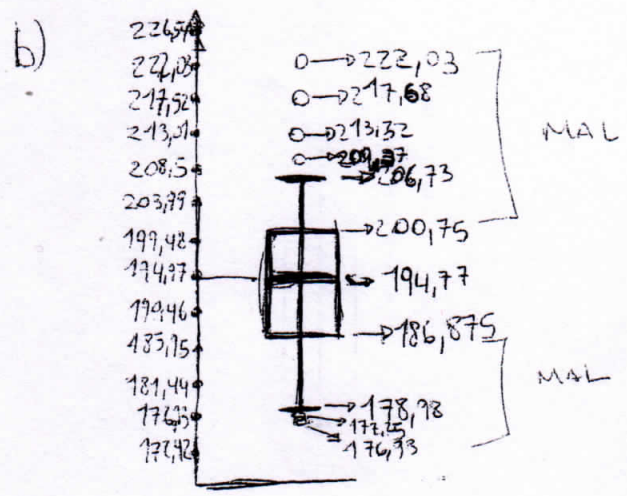 b)
222,03
217,52
213,01
208,5
203,99
199,48
194,97
190,46
185,95
181,44
172,42
222,03
217,68
213,32
206,73
200,75
194,77
186,875
178,98
177,25
176,93
MAL
MAL